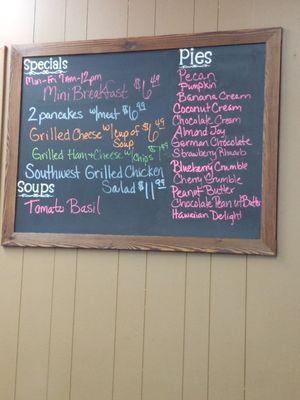 Specials
Mon-Fri 9am-12pm
Mini Breakfast $6.49
2 pancakes w/meat $6.99
Grilled Cheese w/ cup of Soup $6.49
Grilled Ham & Cheese w/ Chips
Southwest Grilled Chicken
Salad $11.99
Soups
Tomato Basil
Pies
Pecan
Pumpkin
Banana Cream
Coconut Cream
Chocolate Cream
Almond Joy
German Chocolate
Strawberry Rhubarb
Blueberry Crumble
Cherry Crumble
Peanut Butter
Chocolate Peanut Butter
Hawaiian Delight